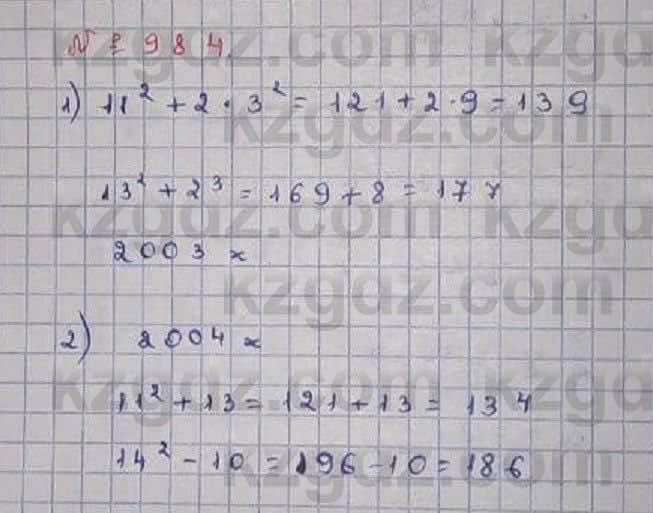 № 984.
1) 11² + 2 · 3² = 121 + 2 · 9 = 139
13² + 2³ = 169 + 8 = 177
2003 ж
2) 2004 ж
11² + 13 = 121 + 13 = 134
14² - 10 = 196 - 10 = 186
kzgdz.com
kzgdz.com
kzgdz.com
kzgdz.com
kzgdz.com
kzgdz.com